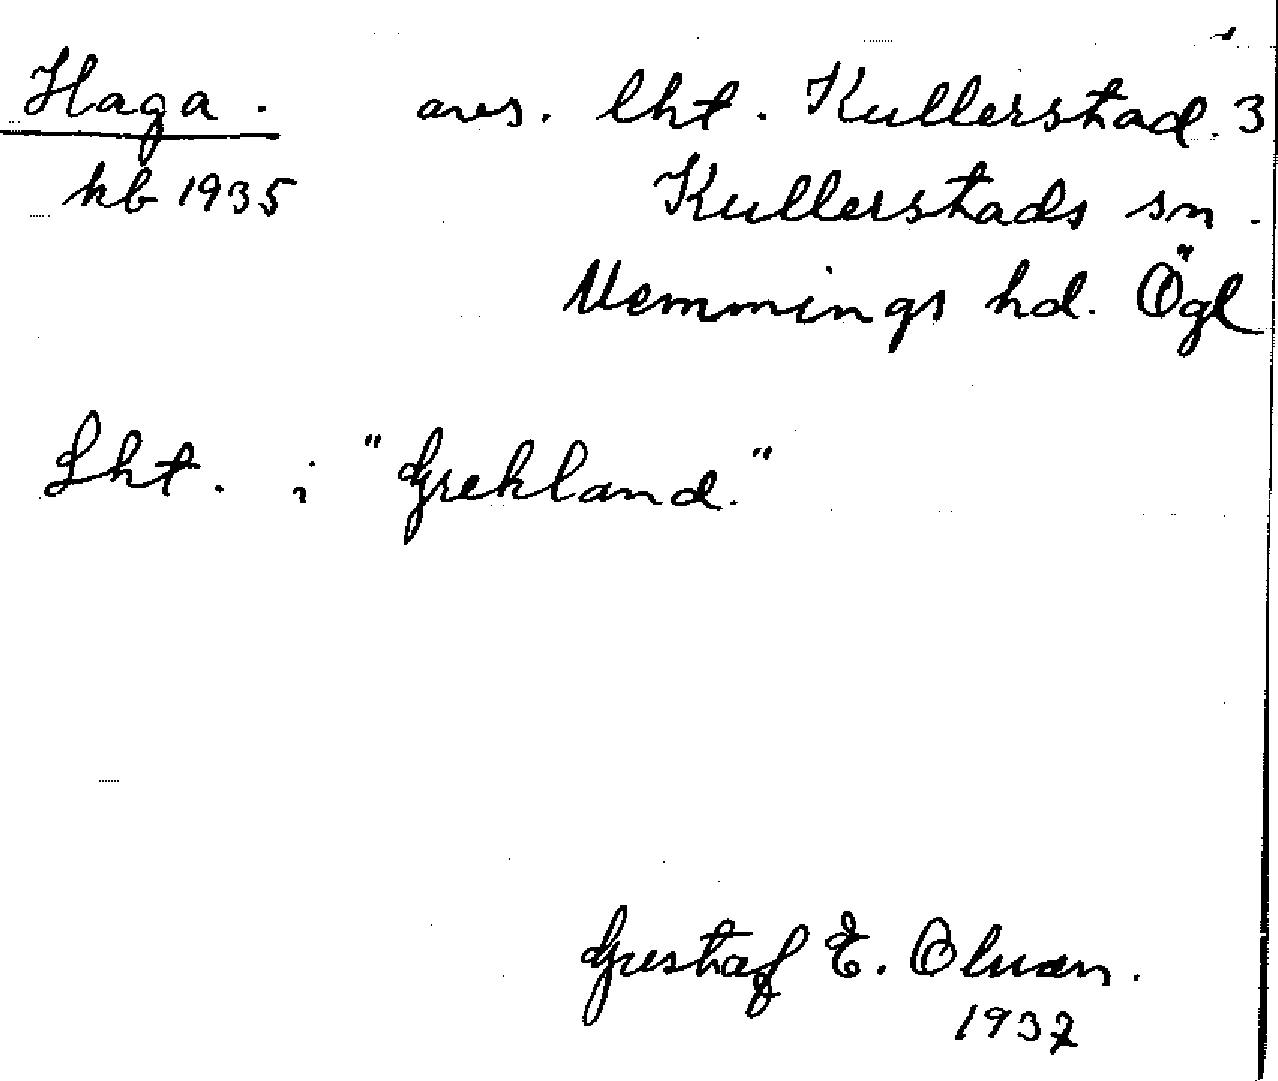 Haga. avs. lht. Kullerstad. 3
kb 1935 Kullerstads sn.
Memmings hd. Ögl
Lht. i "Grekland."
Gustaf E.
1937